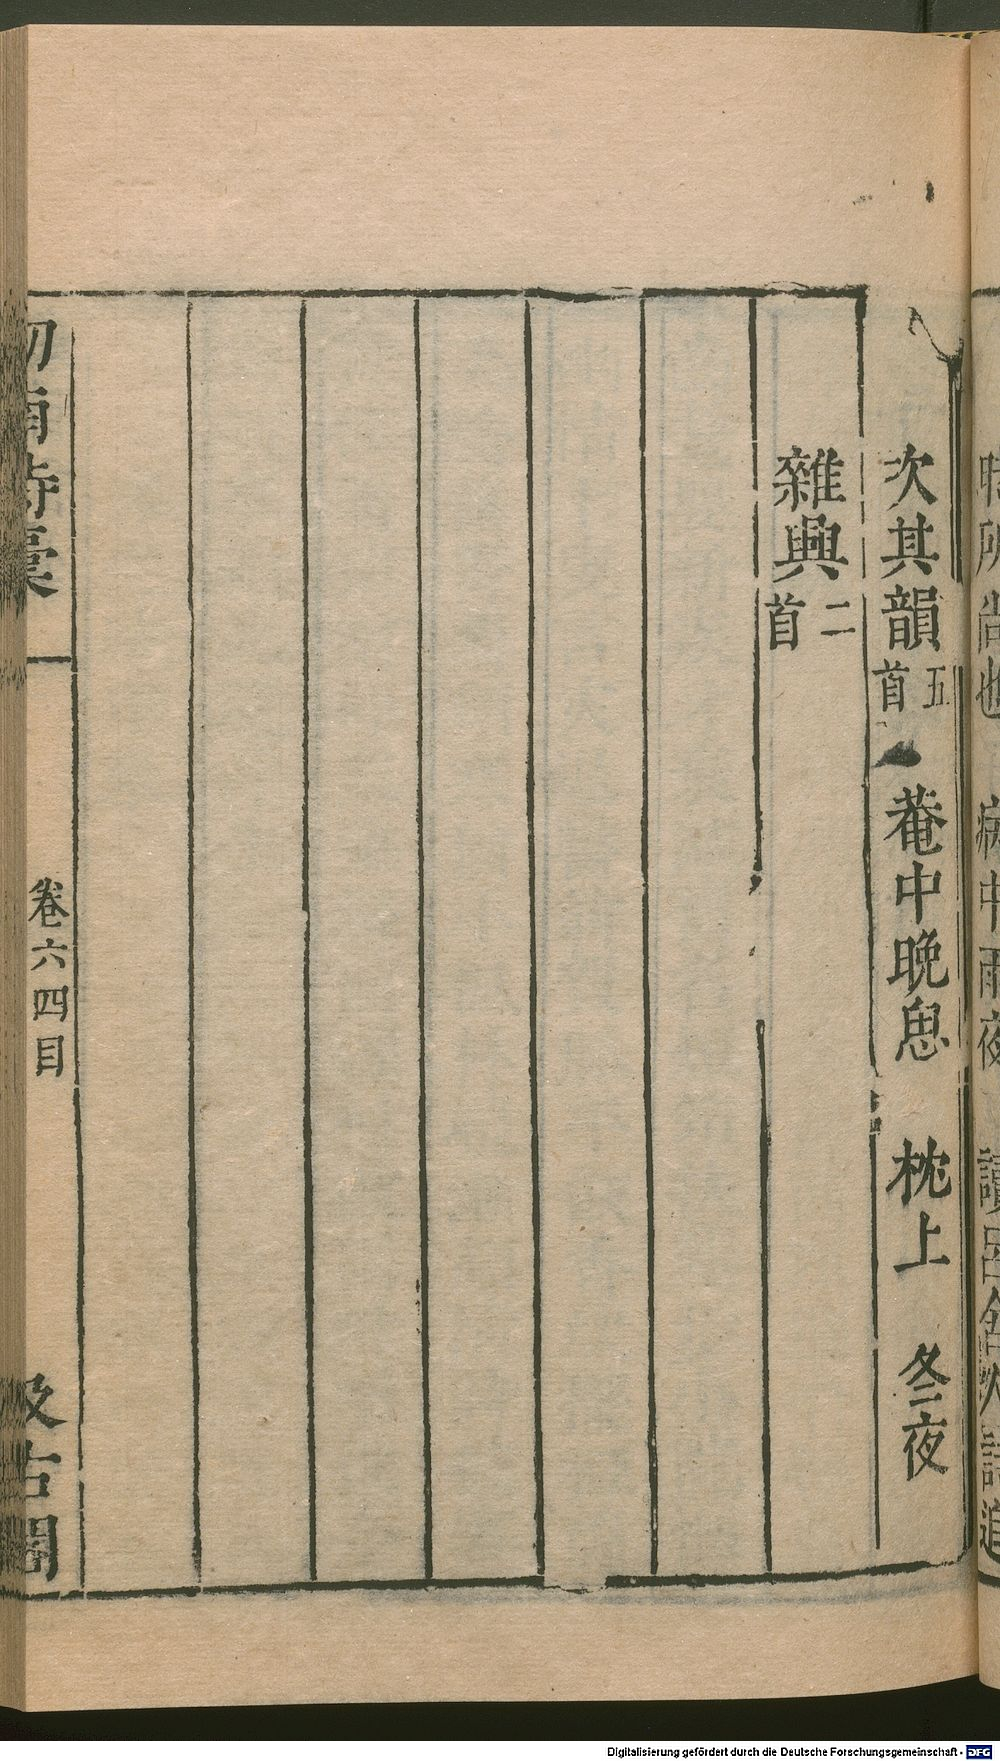 時所尚也 病中雨夜 讀呂舍人詩追
次其韻五首 菴中晚思 枕上 冬夜
雜興二首
劒南詩稾 卷六四目 汲古閣
Digitalisierung gefördert durch die Deutsche Forschungsgemeinschaft - DFG